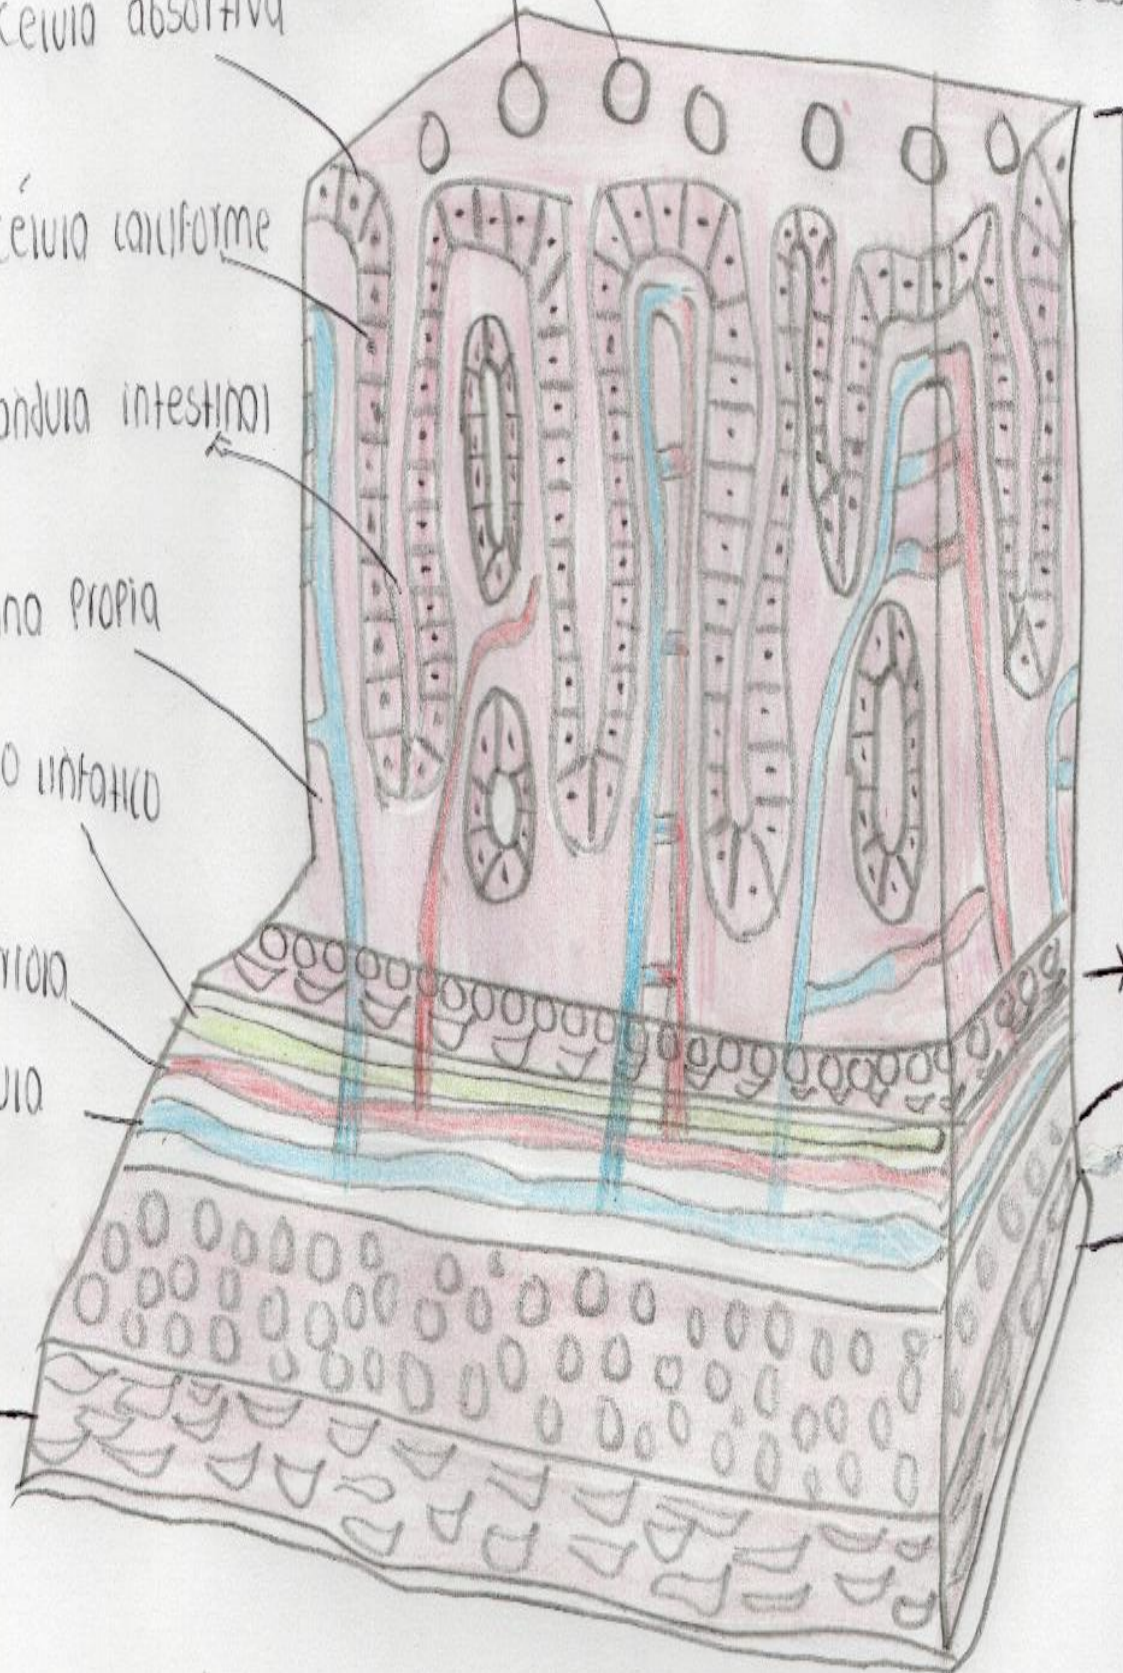 celula absortiva
célula caliciforme
andula intestinal
na Propia
o linfatico
riola
ula